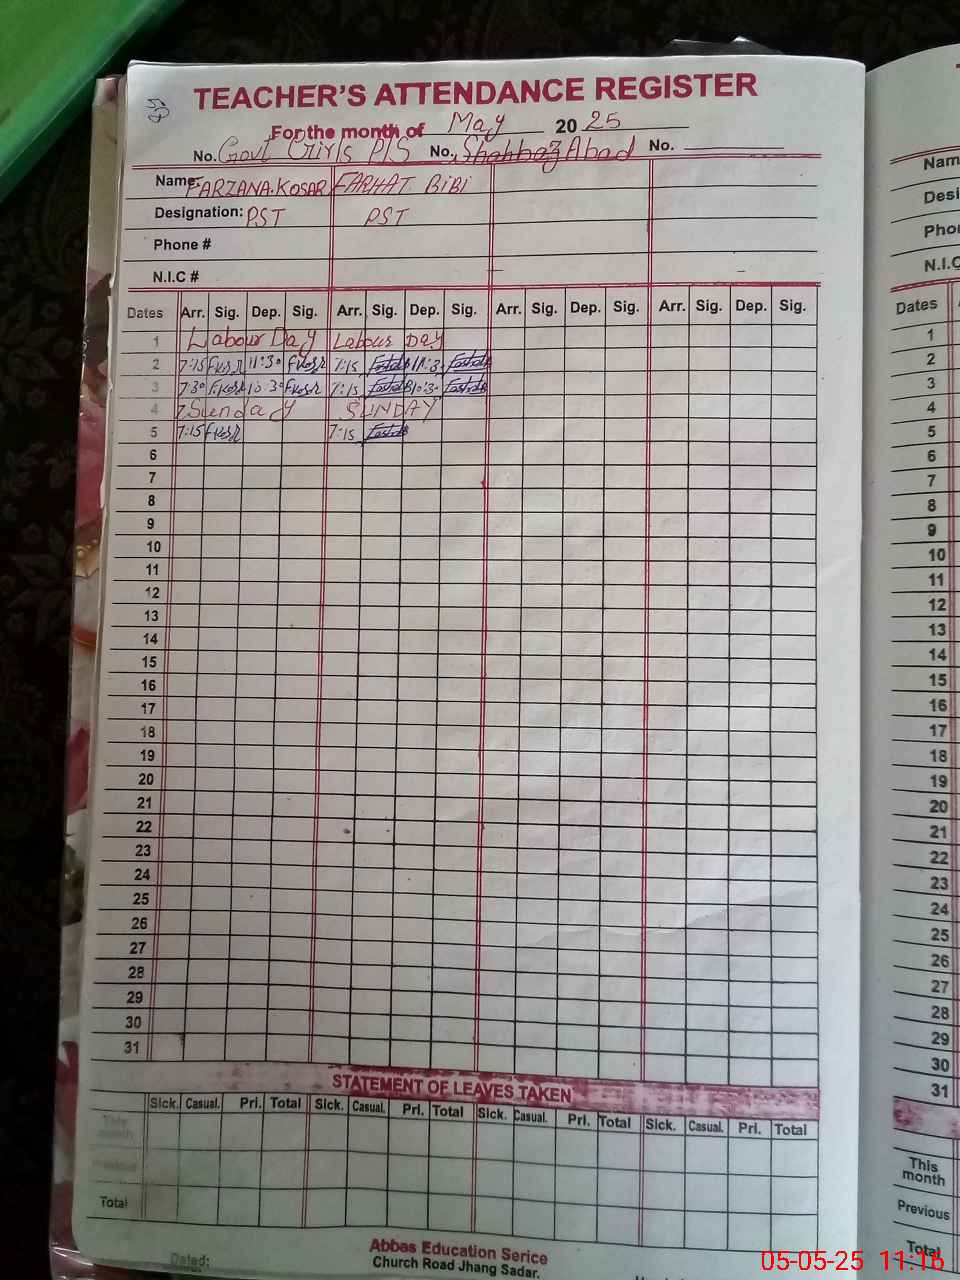 TEACHER'S ATTENDANCE REGISTER
For the month of May 2025
No. Govt Girls P/S No. Shahbaz Abad No.
Name: FARZANA.KOSAR FARHAT BiBi
Designation: PST PST
Phone #
N.I.C #
Dates Arr. Sig. Dep. Sig. Arr. Sig. Dep. Sig. Arr. Sig. Dep. Sig. Arr. Sig. Dep. Sig.
1 Labour Day Labour DAY
2 7:15 11:30 7:15 11:3
3 7:30 10:30 7:15 10:3
4 Sunday SUNDAY
5 7:15 7:15
6
7
8
9
10
11
12
13
14
15
16
17
18
19
20
21
22
23
24
25
26
27
28
29
30
31
STATEMENT OF LEAVES TAKEN
Sick. Casual. Pri. Total Sick. Casual. Pri. Total Sick. Casual. Pri. Total Sick. Casual. Pri. Total
This month
Previous
Total
Abbas Education Serice
Dated: Church Road Jhang Sadar.
Nam
Desi
Pho
N.I.C
Dates
1
2
3
4
5
6
7
8
9
10
11
12
13
14
15
16
17
18
19
20
21
22
23
24
25
26
27
28
29
30
31
This month
Previous
Total
05-05-25 11:16